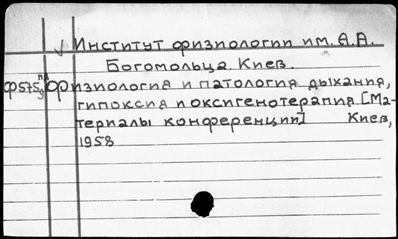 Институт физиологии им. А.А.
Богомольца. Киев.
Ф575 Физиология и патология дыхания,
гипоксия и оксигенотерапия [Ма-
териалы конференции] Киев,
1958